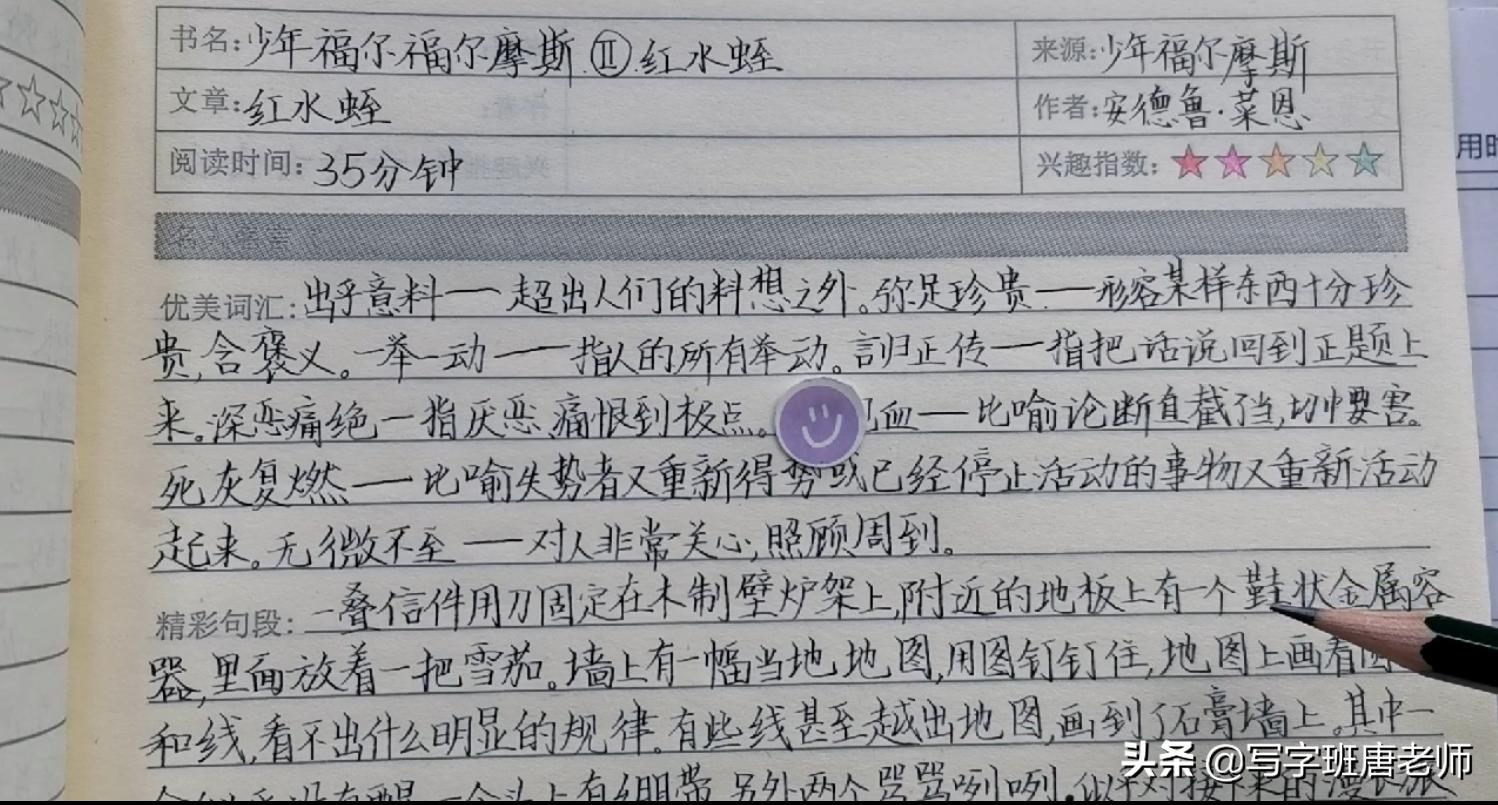 书名:少年福尔福尔摩斯.Ⅱ.红水蛭
来源:少年福尔摩斯
文章:红水蛭
作者:安德鲁·莱恩
阅读时间:35分钟
兴趣指数:
用时
名人名言
优美词汇:出乎意料——超出人们的料想之外。弥足珍贵——形容某样东西十分珍
贵,含褒义。一举一动——指人的所有举动。言归正传——指把话说回到正题上
来。深恶痛绝—指厌恶、痛恨到极点。见血—比喻论断直截了当,切中要害。
死灰复燃——比喻失势者又重新得势或已经停止活动的事物又重新活动
起来。无微不至——对人非常关心,照顾周到。
精彩句段:一叠信件用刀固定在木制壁炉架上,附近的地板上有一个鞋状金属容
器,里面放着一把雪茄。墙上有一幅当地地图,用图钉钉住,地图上画着
和线,看不出什么明显的规律。有些线甚至越出地图,画到了石膏墙上。其中一
没有醒,一个头上有绷带,另外两个骂骂咧咧。似乎对接下来的漫长旅
头条 @写字班唐老师